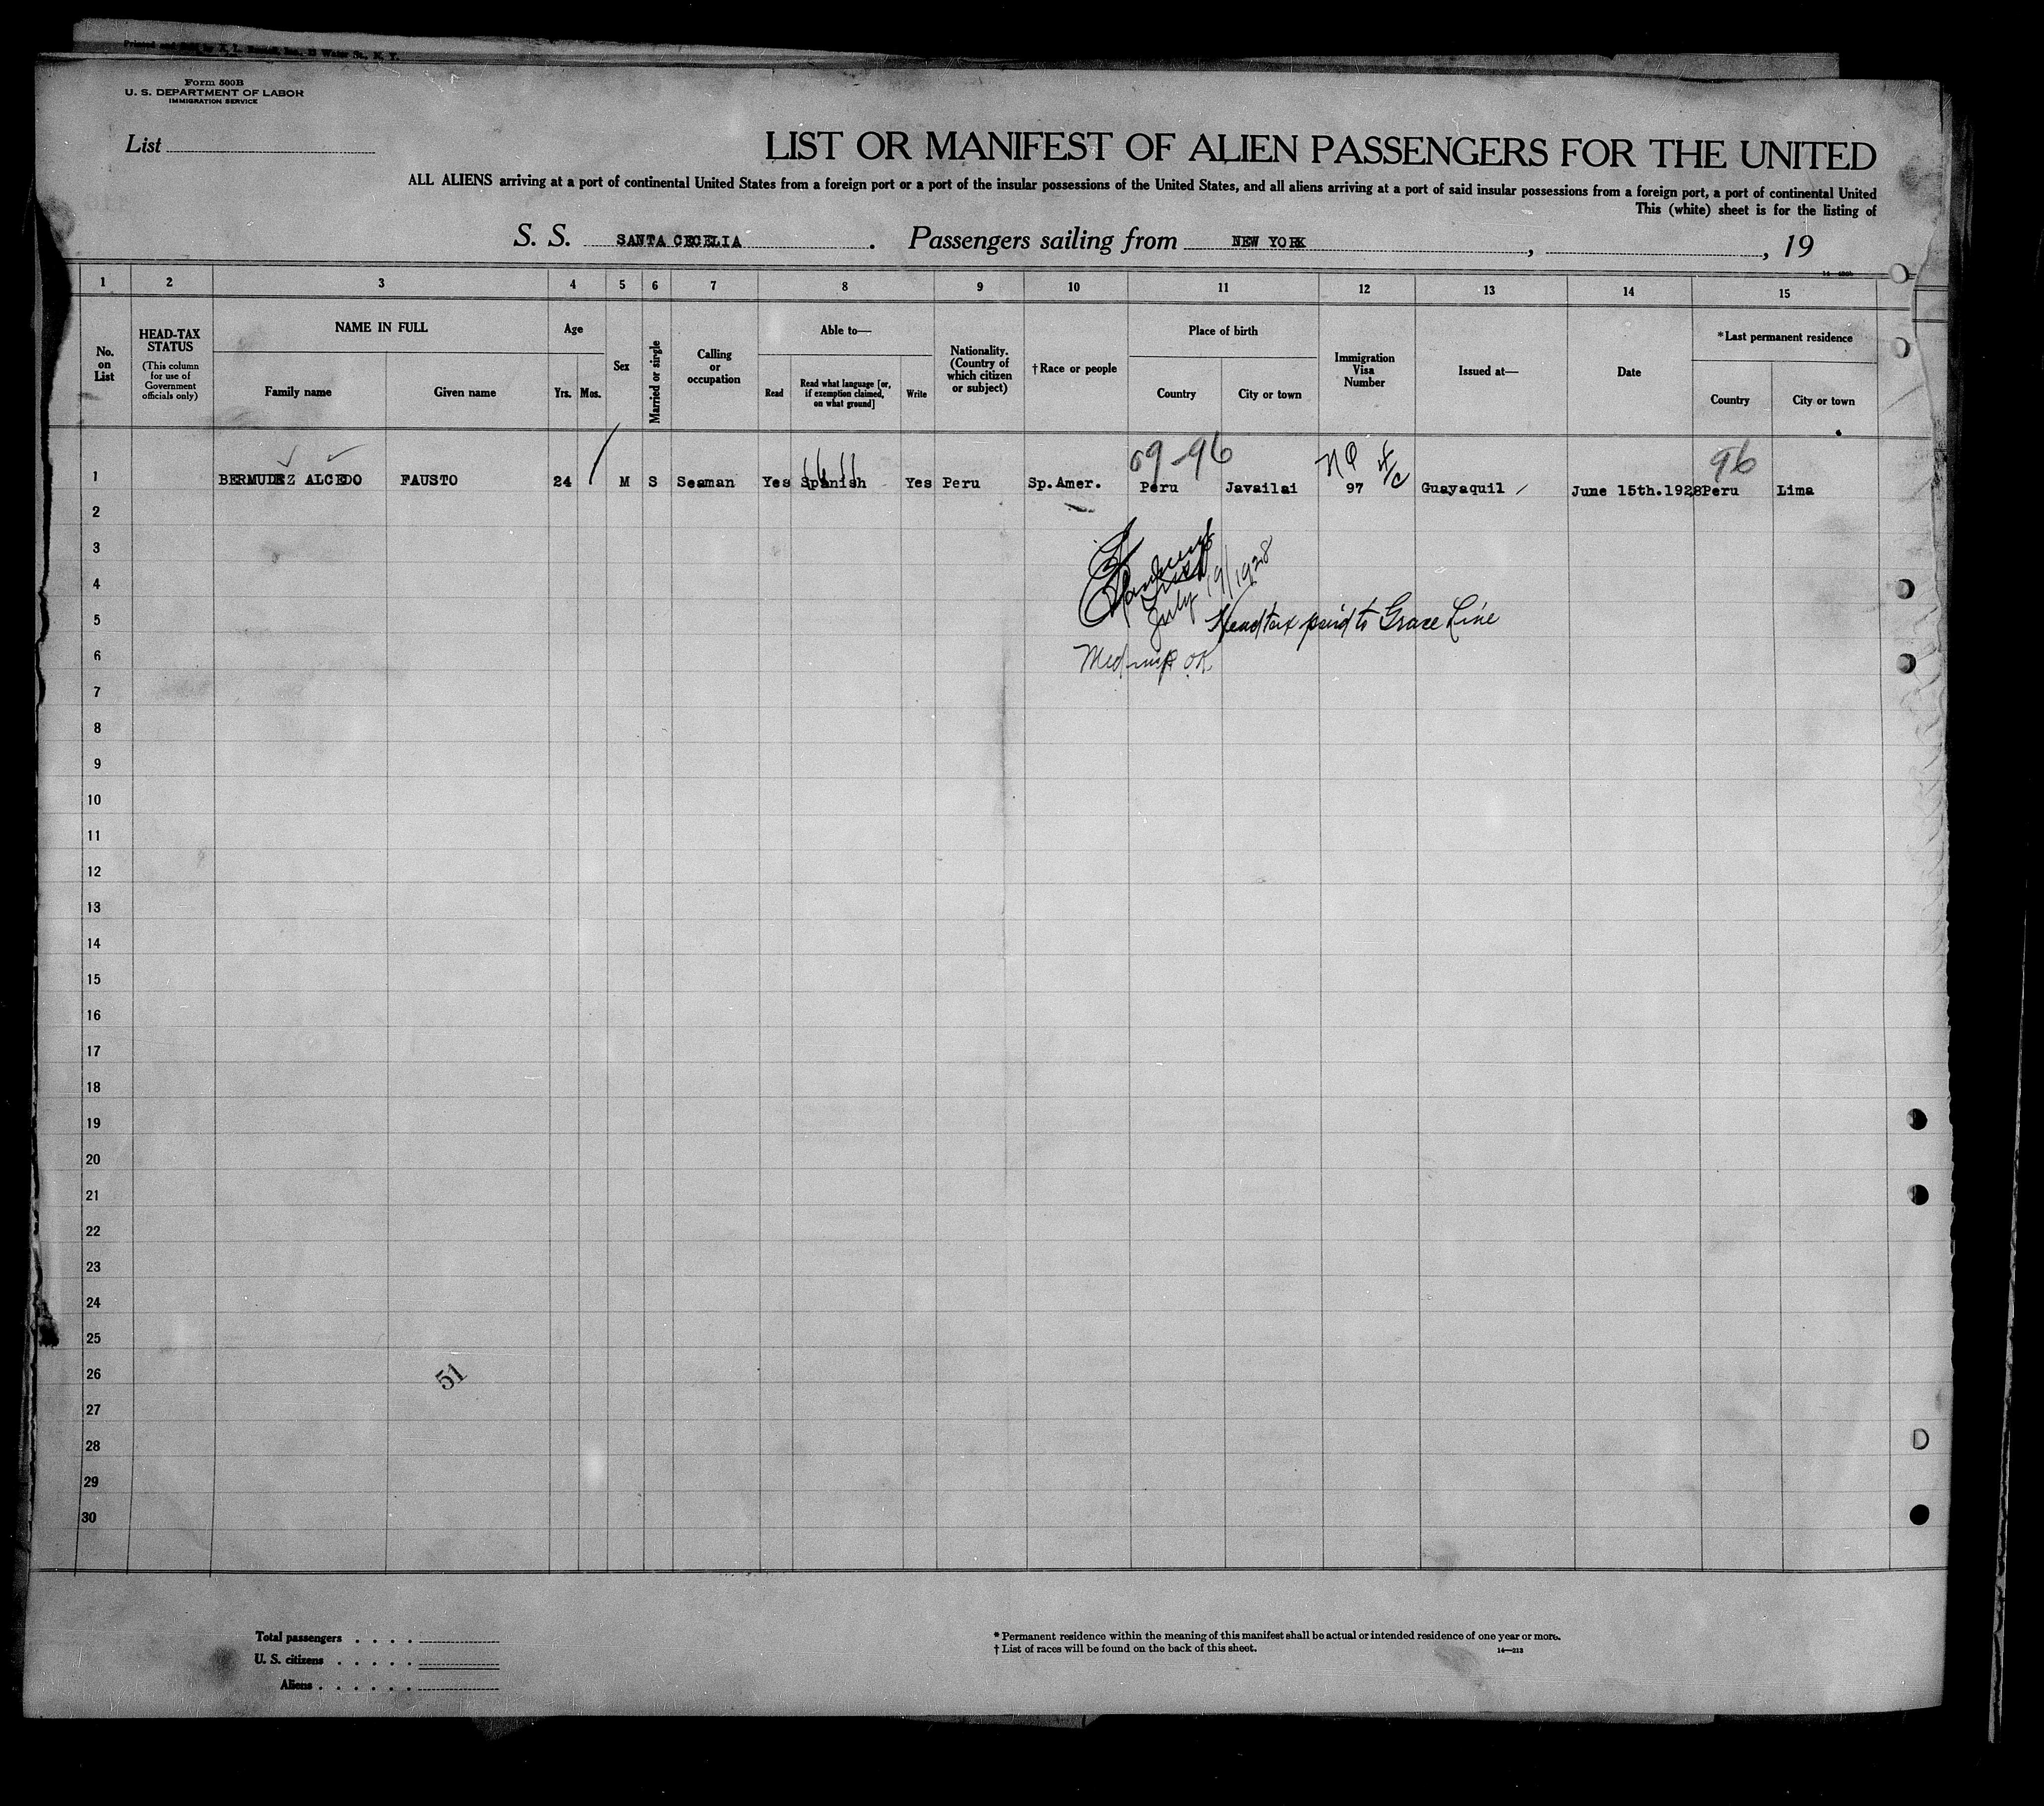 Form 500B
U. S. DEPARTMENT OF LABOR
IMMIGRATION SERVICE
List
LIST OR MANIFEST OF ALIEN PASSENGERS FOR THE UNITED
ALL ALIENS arriving at a port of continental United States from a foreign port or a port of the insular possessions of the United States, and all aliens arriving at a port of said insular possessions from a foreign port, a port of continental United
This (white) sheet is for the listing of
S. S. SANTA CECELIA. Passengers sailing from NEW YORK, , 19
1 2 3 4 5 6 7 8 9 10 11 12 13 14 15
No. on List
HEAD-TAX STATUS
(This column for use of Government officials only)
NAME IN FULL
Family name
Given name
Age
Yrs. Mos.
Sex
Married or single
Calling or occupation
Able to—
Read
Read what language [or, if exemption claimed, on what ground]
Write
Nationality. (Country of which citizen or subject)
†Race or people
Place of birth
Country
City or town
Immigration Visa Number
Issued at—
Date
*Last permanent residence
Country
City or town
69-96 96
1 BERMUDEZ ALCEDO FAUSTO 24 M S Seaman Yes Spanish Yes Peru Sp.Amer. Peru Javailai 97 Guayaquil June 15th.1928 Peru Lima
2
3
July 19/1928
4
5
Head tax paid to Grace Line
6
7
8
9
10
11
12
13
14
15
16
17
18
19
20
21
22
23
24
25
26
51
27
28
29
30
Total passengers . . . .
U. S. citizens . . . . .
Aliens . . . . . .
* Permanent residence within the meaning of this manifest shall be actual or intended residence of one year or more.
† List of races will be found on the back of this sheet.
14—213